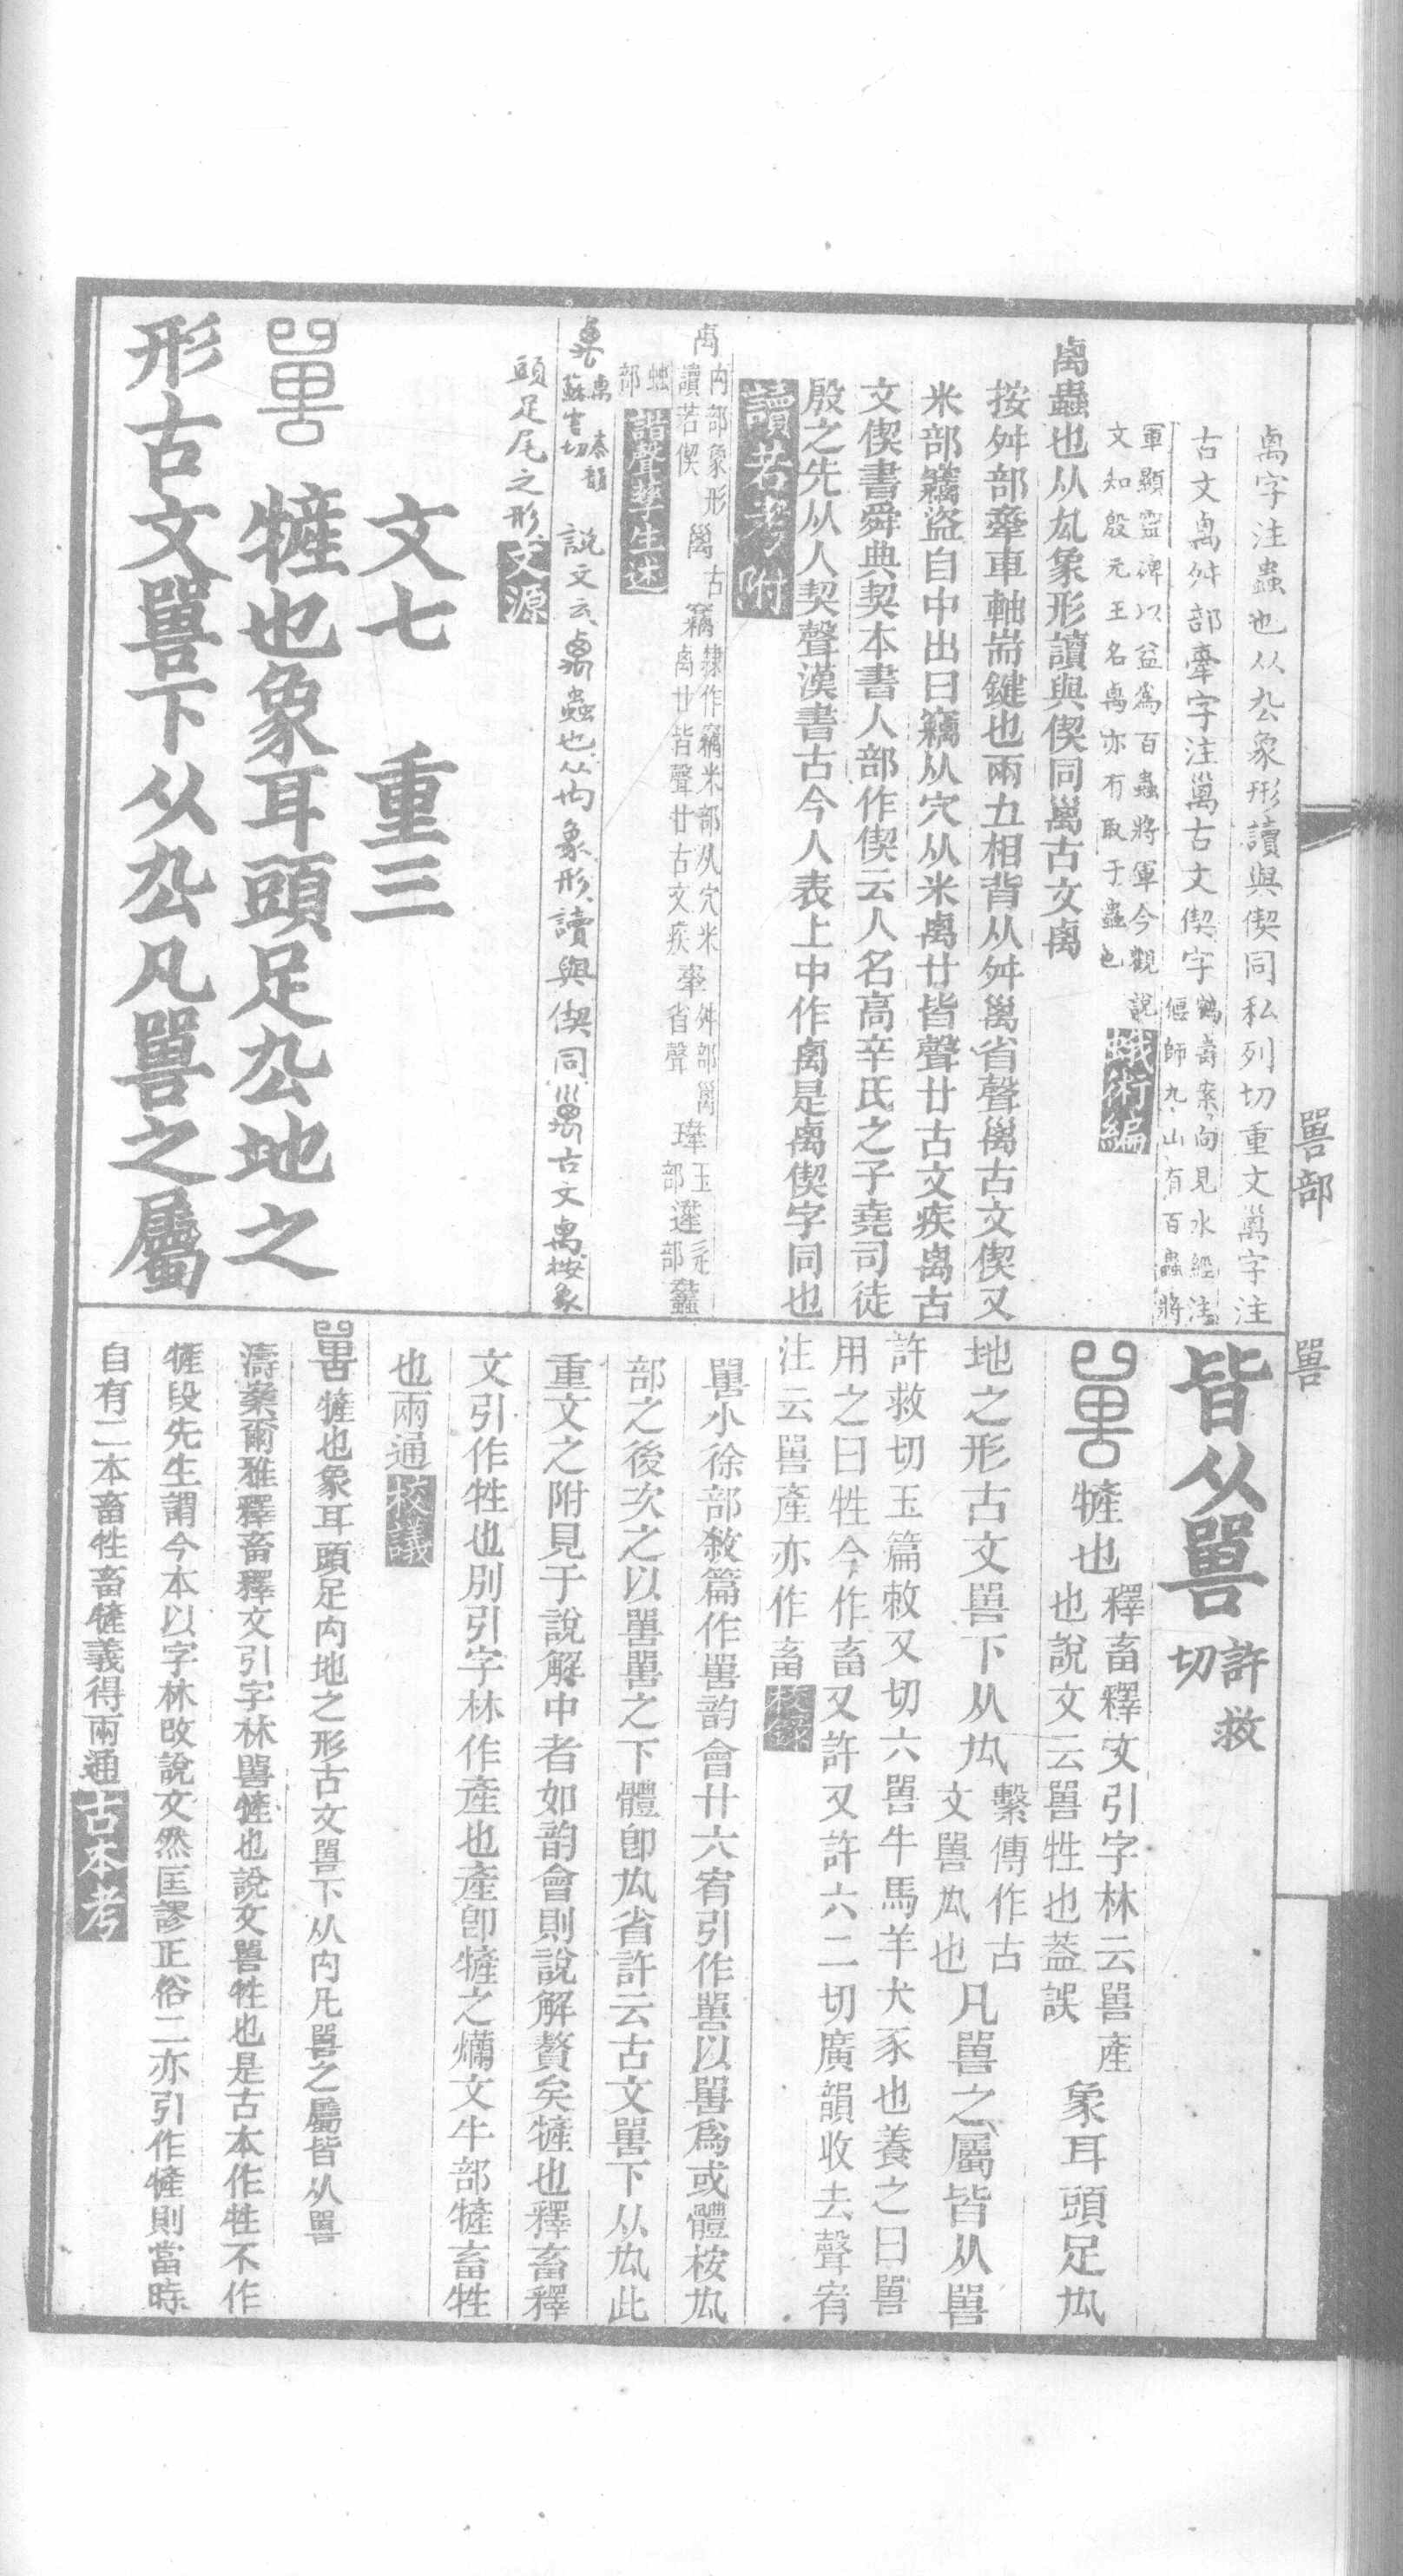 禼字注蟲也从厹象形讀與偰同私列切重文𥜿字注
古文禼舛部舝字注𥜿古文偰字鶴壽案向見水經注
偃師九山有百蟲將
軍顯靈碑以益爲百蟲將軍今觀說
文知殷元王名禼亦有取于蟲也蛾術編
禼蟲也从厹象形讀與偰同𥜿古文禼
按舛部舝車軸耑鍵也兩五相背从舛𥜿省聲𥜿古文偰又
米部竊盜自中出曰竊从穴从米禼廿皆聲廿古文疾禼古
文偰書舜典契本書人部作偰云人名高辛氏之子堯司徒
殷之先从人契聲漢書古今人表上中作禼是禼偰字同也
讀若考附
禼内部象形
讀若偰𥜿古
竊隸作竊米部从穴米
禼廿皆聲廿古文疾舝舛部𥜿
省聲
玉部
部
諧聲孳生述
說文云禼蟲也从厹象形讀與偰同𥜿古文禼按象
頭足尾之形文源
文七 重三
嘼 㹌也象耳頭足厹地之
形古文嘼下从厹凡嘼之屬
嘼部 嘼
皆从嘼許救
切
嘼 㹌也釋畜釋文引字林云嘼產
也說文云嘼牲也蓋誤象耳頭足厹
地之形古文嘼下从厹繫傳作古
文嘼厹也凡嘼之屬皆从嘼
許救切玉篇敕又切六嘼牛馬羊犬豕也養之曰嘼
用之曰牲今作畜又許又許六二切廣韻收去聲宥
注云嘼產亦作畜校錄
嘼小徐部敘篇作嘼韵會廿六宥引作嘼以嘼爲或體桉厹
部之後次之以嘼嘼之下體卽厹省許云古文嘼下从厹此
重文之附見于說解中者如韵會則說解贅矣㹌也釋畜釋
文引作牲也別引字林作產也產卽㹌之爛文牛部㹌畜牲
也兩通校議
嘼㹌也象耳頭足内地之形古文嘼下从内凡嘼之屬皆从嘼
濤案爾雅釋畜釋文引字林嘼㹌也說文嘼牲也是古本作牲不作
㹌段先生謂今本以字林改說文然匡謬正俗二亦引作㹌則當時
自有二本畜牲畜㹌義得兩通古本考